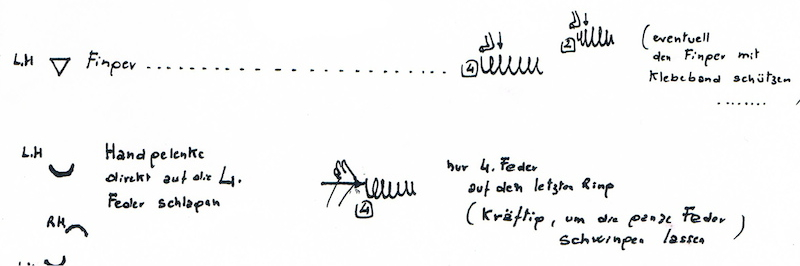 L.H Finger .............................. 4 2 (eventuell
den Finger mit
Klebeband schützen
........)
L.H Handgelenke
direkt auf die 4.
Feder schlagen
4
nur 4. Feder
auf den letzten Ring
(Kräftig, um die ganze Feder
schwingen lassen)
RH